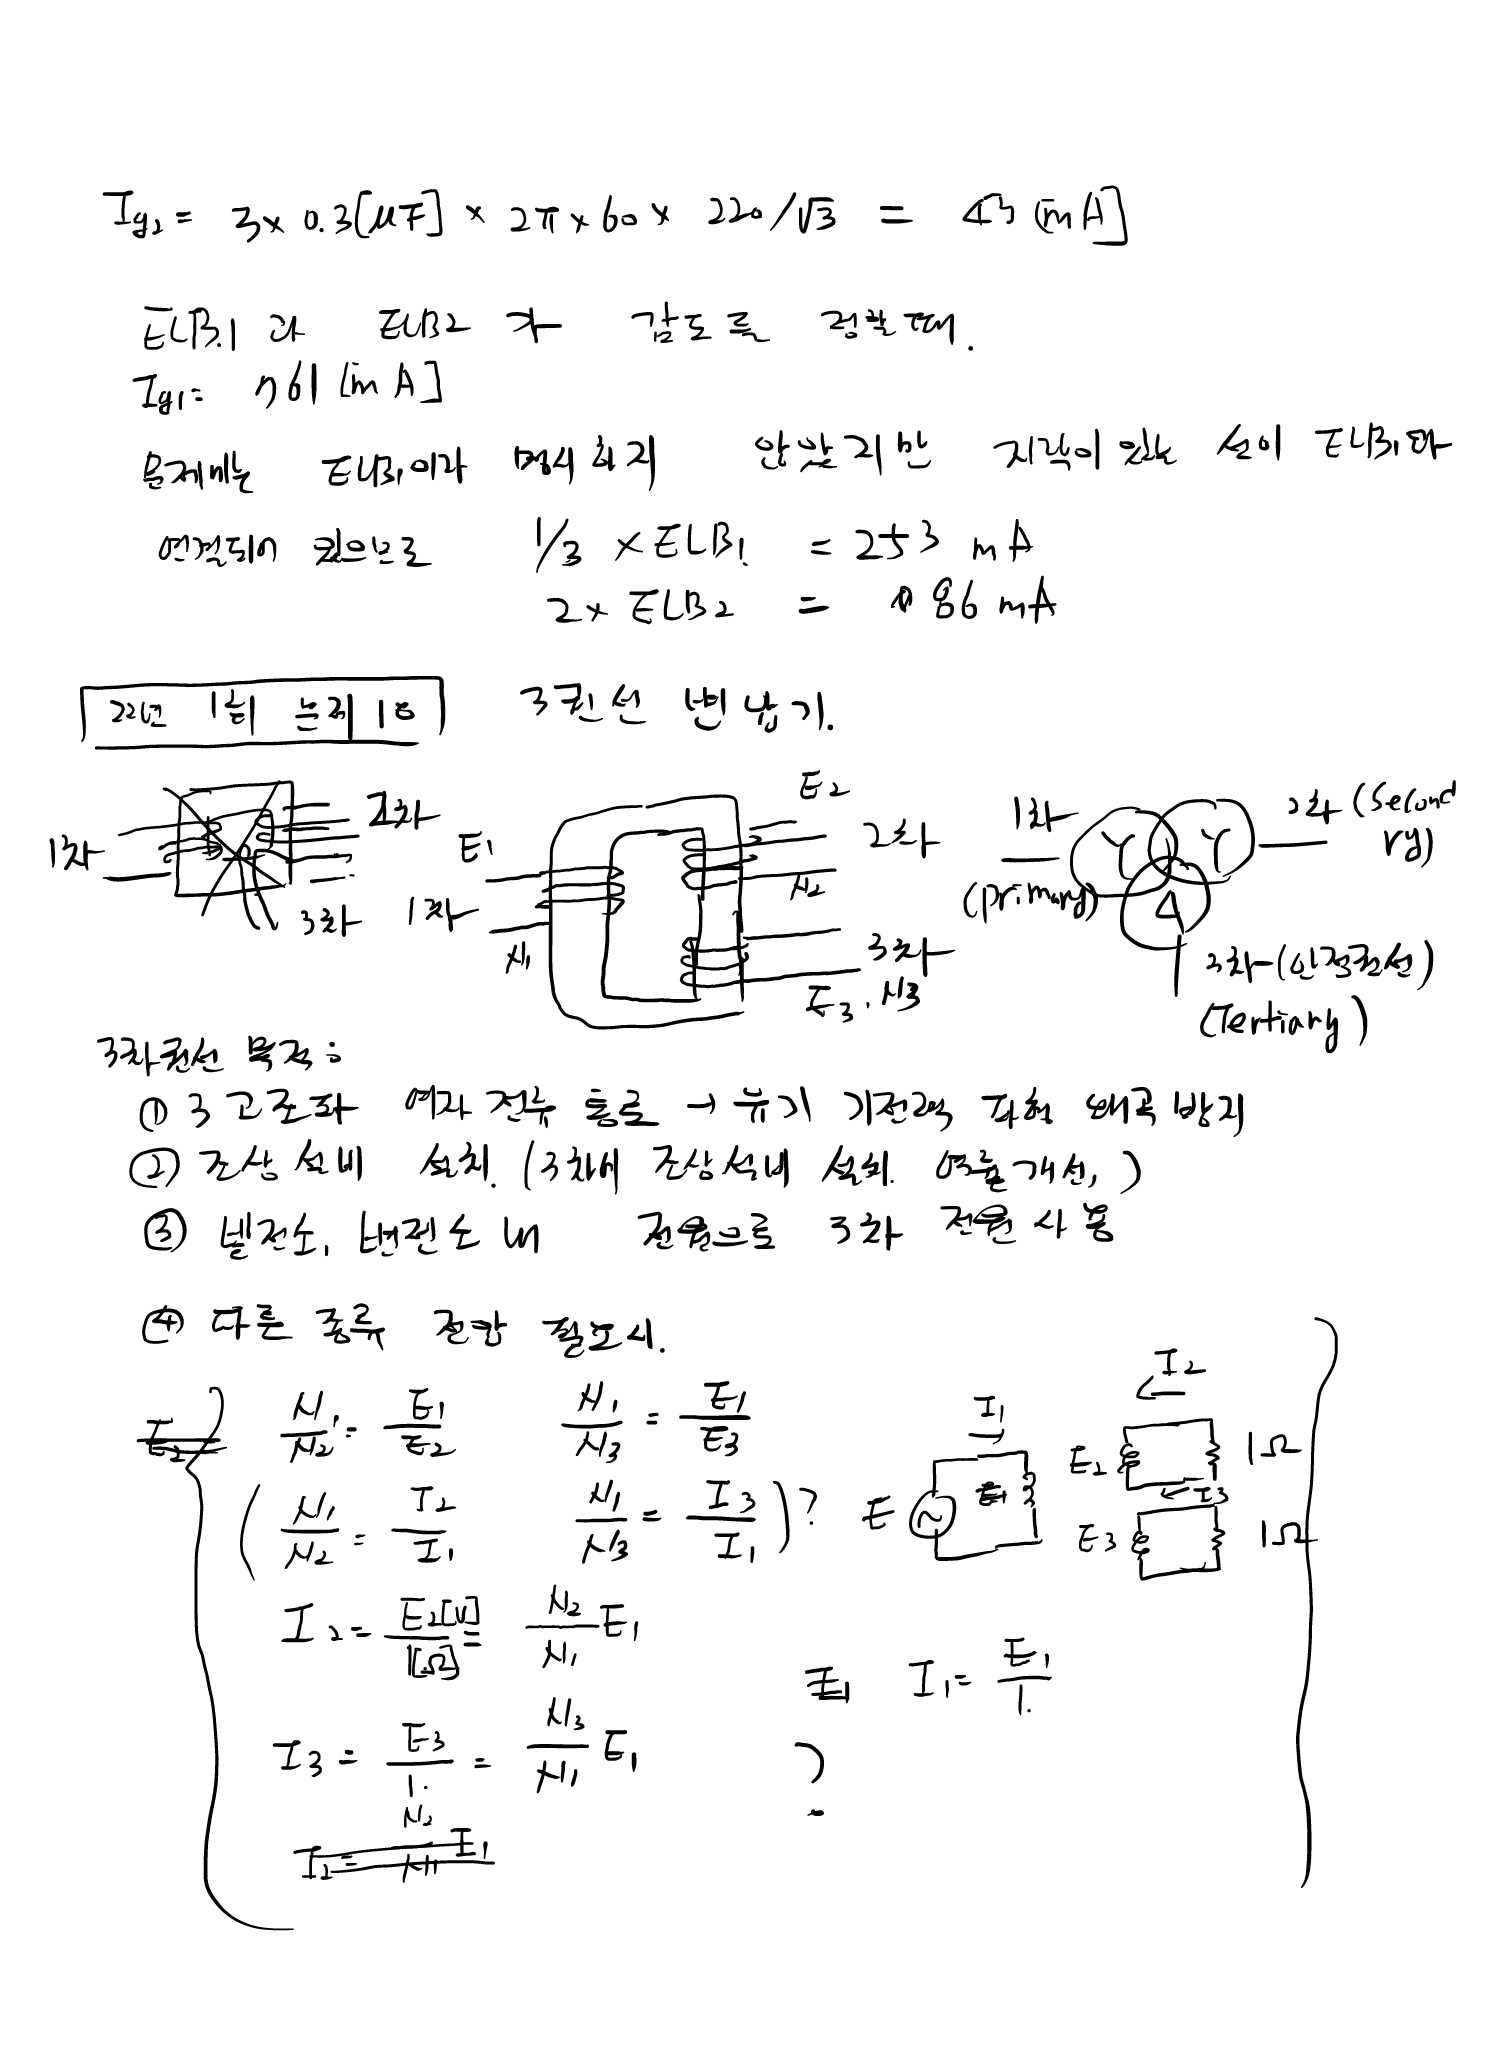 Ig2 = 3 × 0.3[μF] × 2π × 60 × 220/√3 = 43 [mA]
ELB1 과 ELB2 가 감도를 정할때.
Ig1 = 761 [mA]
문제에는 ELB1이라 명시하지 않았지만 지락이 있는 선이 ELB1과
연결되어 있으므로 1/3 × ELB1 = 253 mA
2 × ELB2 = 86 mA
22년 1회 문제 18 3권선 변압기.
1차 2차 3차
E1 1차 N1
E2 2차 N2
3차 E3, N3
1차 (primary) Y Y 2차 (Secondary)
Δ 3차 (안정권선) (Tertiary)
3차권선 목적 :
① 3고조파 여자 전류 통로 → 유기 기전력 파형 왜곡 방지
② 조상 설비 설치. (3차에 조상설비 설치. 역률개선,)
③ 발전소, 변전소 내 전원으로 3차 전원 사용
④ 다른 종류 전압 필요시.
N1/N2 = E1/E2 N1/N3 = E1/E3
(N1/N2 = I2/I1 N1/N3 = I3/I1)?
E I1 E1 I2 E2 1Ω I3 E3 1Ω
I2 = E2[V]/1[Ω] = N2/N1 E1
E1 I1 = E1/1.
I3 = E3/1. = N3/N1 E1 ?
I2 = N2/N1 I1